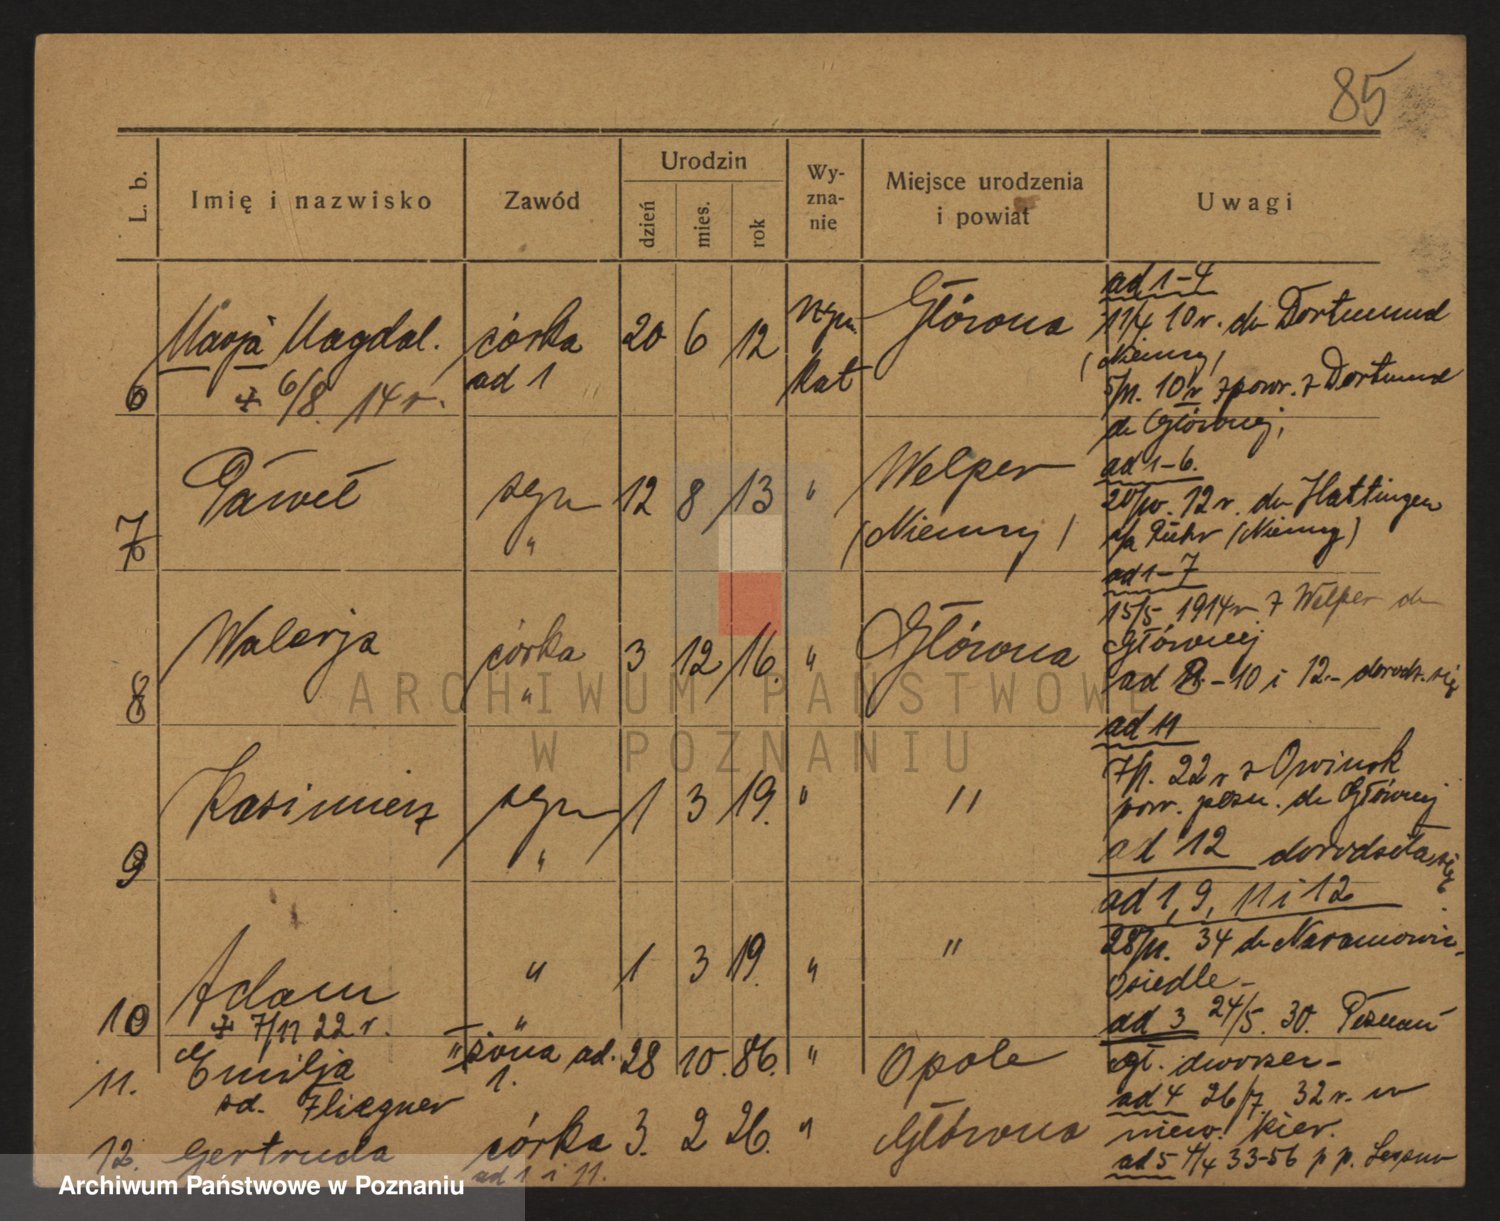 85
L. b.
Imię i nazwisko
Zawód
Urodzin
dzień
mies.
rok
Wy-
zna-
nie
Miejsce urodzenia
i powiat
Uwagi
6
Marja Magdal.
+ 6/8. 14 r.
córka
ad 1
20 6 12
rzym
kat
Główna
7
Paweł
syn
"
12 8 13 "
Welper
(Niemcy)
8
Walerja
córka
"
3 12 16. "
Główna
9
Kazimierz
syn
"
1 3 19. "
"
10
Adam
+ 7/11 22 r.
"
"
1 3 19. "
"
11.
Emilja
Fliegner
II żona ad.
1.
28 10. 86. "
Opole
12.
Gertruda
córka
ad 1 i 11.
3. 2 26. "
Główna
ad 1-4
11/4 10 r. do Dortmund
(Niemcy)
10 r. z powr. z Dortmund
do Głównej,
ad 1-6.
12 r. do Hattingen
Ruhr (Niemcy)
ad 1-7
15/5 1914 r. z Welper do
Głównej
ad 8.-10 i 12.- dorodz. się
ad 11
22 r z Owinsk
pow. pozn. do Głównej
ad 12 dorodziła się
ad 1, 9, 11 i 12
34 do Naramowic
Osiedle-
ad 3 24/5. 30. Poznań
gł. dworzec-
ad 4 26/7. 32 r. w
niew. kier.
ad 5 4/4 33-56 p p.
ARCHIWUM PAŃSTWOWE
W POZNANIU
Archiwum Państwowe w Poznaniu